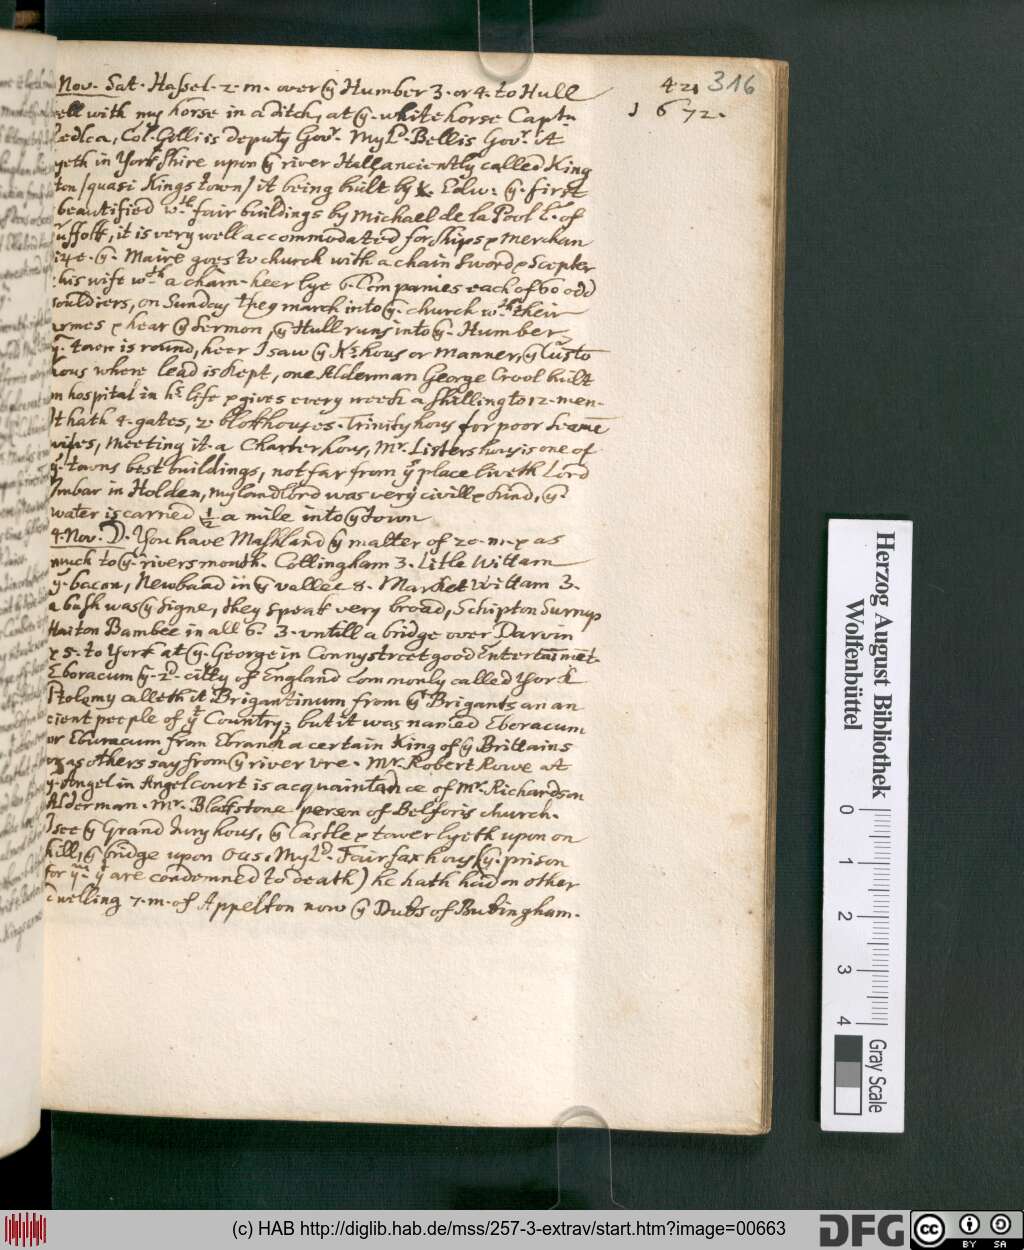 421 316
1672.
Nov. Sat. Hassel. 2. m. over ye Humber 3. or 4. to Hull
ell with my horse in a ditch, at ye. white horse Captn
edlca, Col. Gilli is deputy Govr. My Ld. Bellis Govr. it
yeth in Yorkshire upon ye river Hall anciently called King
ton/quasi Kings town/ it being built by K. Edw: ye. first
beautified wth fair buildings by Michael de la Pool E. of
uffolk, it is very well accommodated for ships & merchan
ye. Maire goes to church with a chain sword & scepter
his wife wth a chain. heer lye 6. Companies each of 60 odd
souldiers, on Sunday they march into ye. church wth their
armes & hear ye Sermon, ye Hull runs into ye. Humber
ye. town is round, heer I saw ye Ks hous or manner, ye Custo
hous where lead is kept, one Alderman George Crool built
n hospital in hs life & gives every week a shilling to 12. men.
It hath 4. gates, 2 blokhouses. Trinity hous for poor seame
wifes, meeting it. a Charterhous, Mr. Listers hous is one of
ye. towns best buildings, not far from yt place liveth Lord
Imbar in Holden, my landlord was very civill & kind, ye.
water is carried ½ a mile into ye town
4. Nov. D. You have Mashland ye matter of 20. m. & as
much to ye. rivers mouth. Collingham 3. Litle Wittam
ye. bacon, Newbaad in ye vallee 8. Market Wittam 3.
a bush was ye signe, they speak very broad, Schipton Surnup
Haiton Bambee in all 6. 3. untill a bridge over Darvin
& 5. to York at ye. George in Connystreet good Entertainmēt.
Eboracum ye. 2d. citty of England commonly called York
Ptolomy calleth it Brigantinum from ye Brigants an an
cient people of yt Country; but it was named Eboracum
or Eburacum from Ebrank a certain King of ye Brittains
or as others say from ye river Ure. Mr. Robert Rowe at
ye. Angel in Angel court is acquaintance of Mr. Richardson
Alderman. Mr. Blakstone person of Belforis church.
I see ye Grand Jury hous, ye Castle & tower lyeth upon on
hill, ye bridge upon Ous. My Ld. Fairfax hous (ye. prison
for ym yt are condemned to death) he hath had on other
dwelling 7. m. of Appelton now ye Duks of Bukingham.
Herzog August Bibliothek
Wolfenbüttel
0 1 2 3 4
Gray Scale
(c) HAB http://diglib.hab.de/mss/257-3-extrav/start.htm?image=00663
DFG
cc BY SA